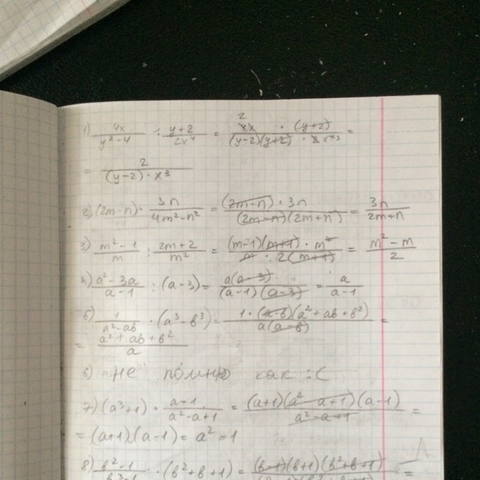 1) 4x/(y²-4) : (y+2)/(2x⁴) = 2 4x · (y+2)/((y-2)(y+2) · 2x⁴³) =
= 2/((y-2) · x³)
2) (2m-n) · 3n/(4m²-n²) = (2m-n) · 3n/((2m-n)(2m+n)) = 3n/(2m+n)
3) (m²-1)/m : (2m+2)/m² = (m-1)(m+1) · m²/(m · 2(m+1)) = (m²-m)/2
4) (a²-3a)/(a-1) : (a-3) = a(a-3)/((a-1)(a-3)) = a/(a-1)
5) 1/(a²-ab) · (a³-b³) = 1·(a-b)(a²+ab+b²)/(a(a-b)) =
= (a²+ab+b²)/a
6) не помню как :С
7) (a³+1) · (a+1)/(a²-a+1) = (a+1)(a²-a+1)(a-1)/(a²-a+1) =
= (a+1)(a-1) = a²-1
8) (b²-1)/ · (b²+b+1) = (b-1)(b+1)(b²+b+1) =